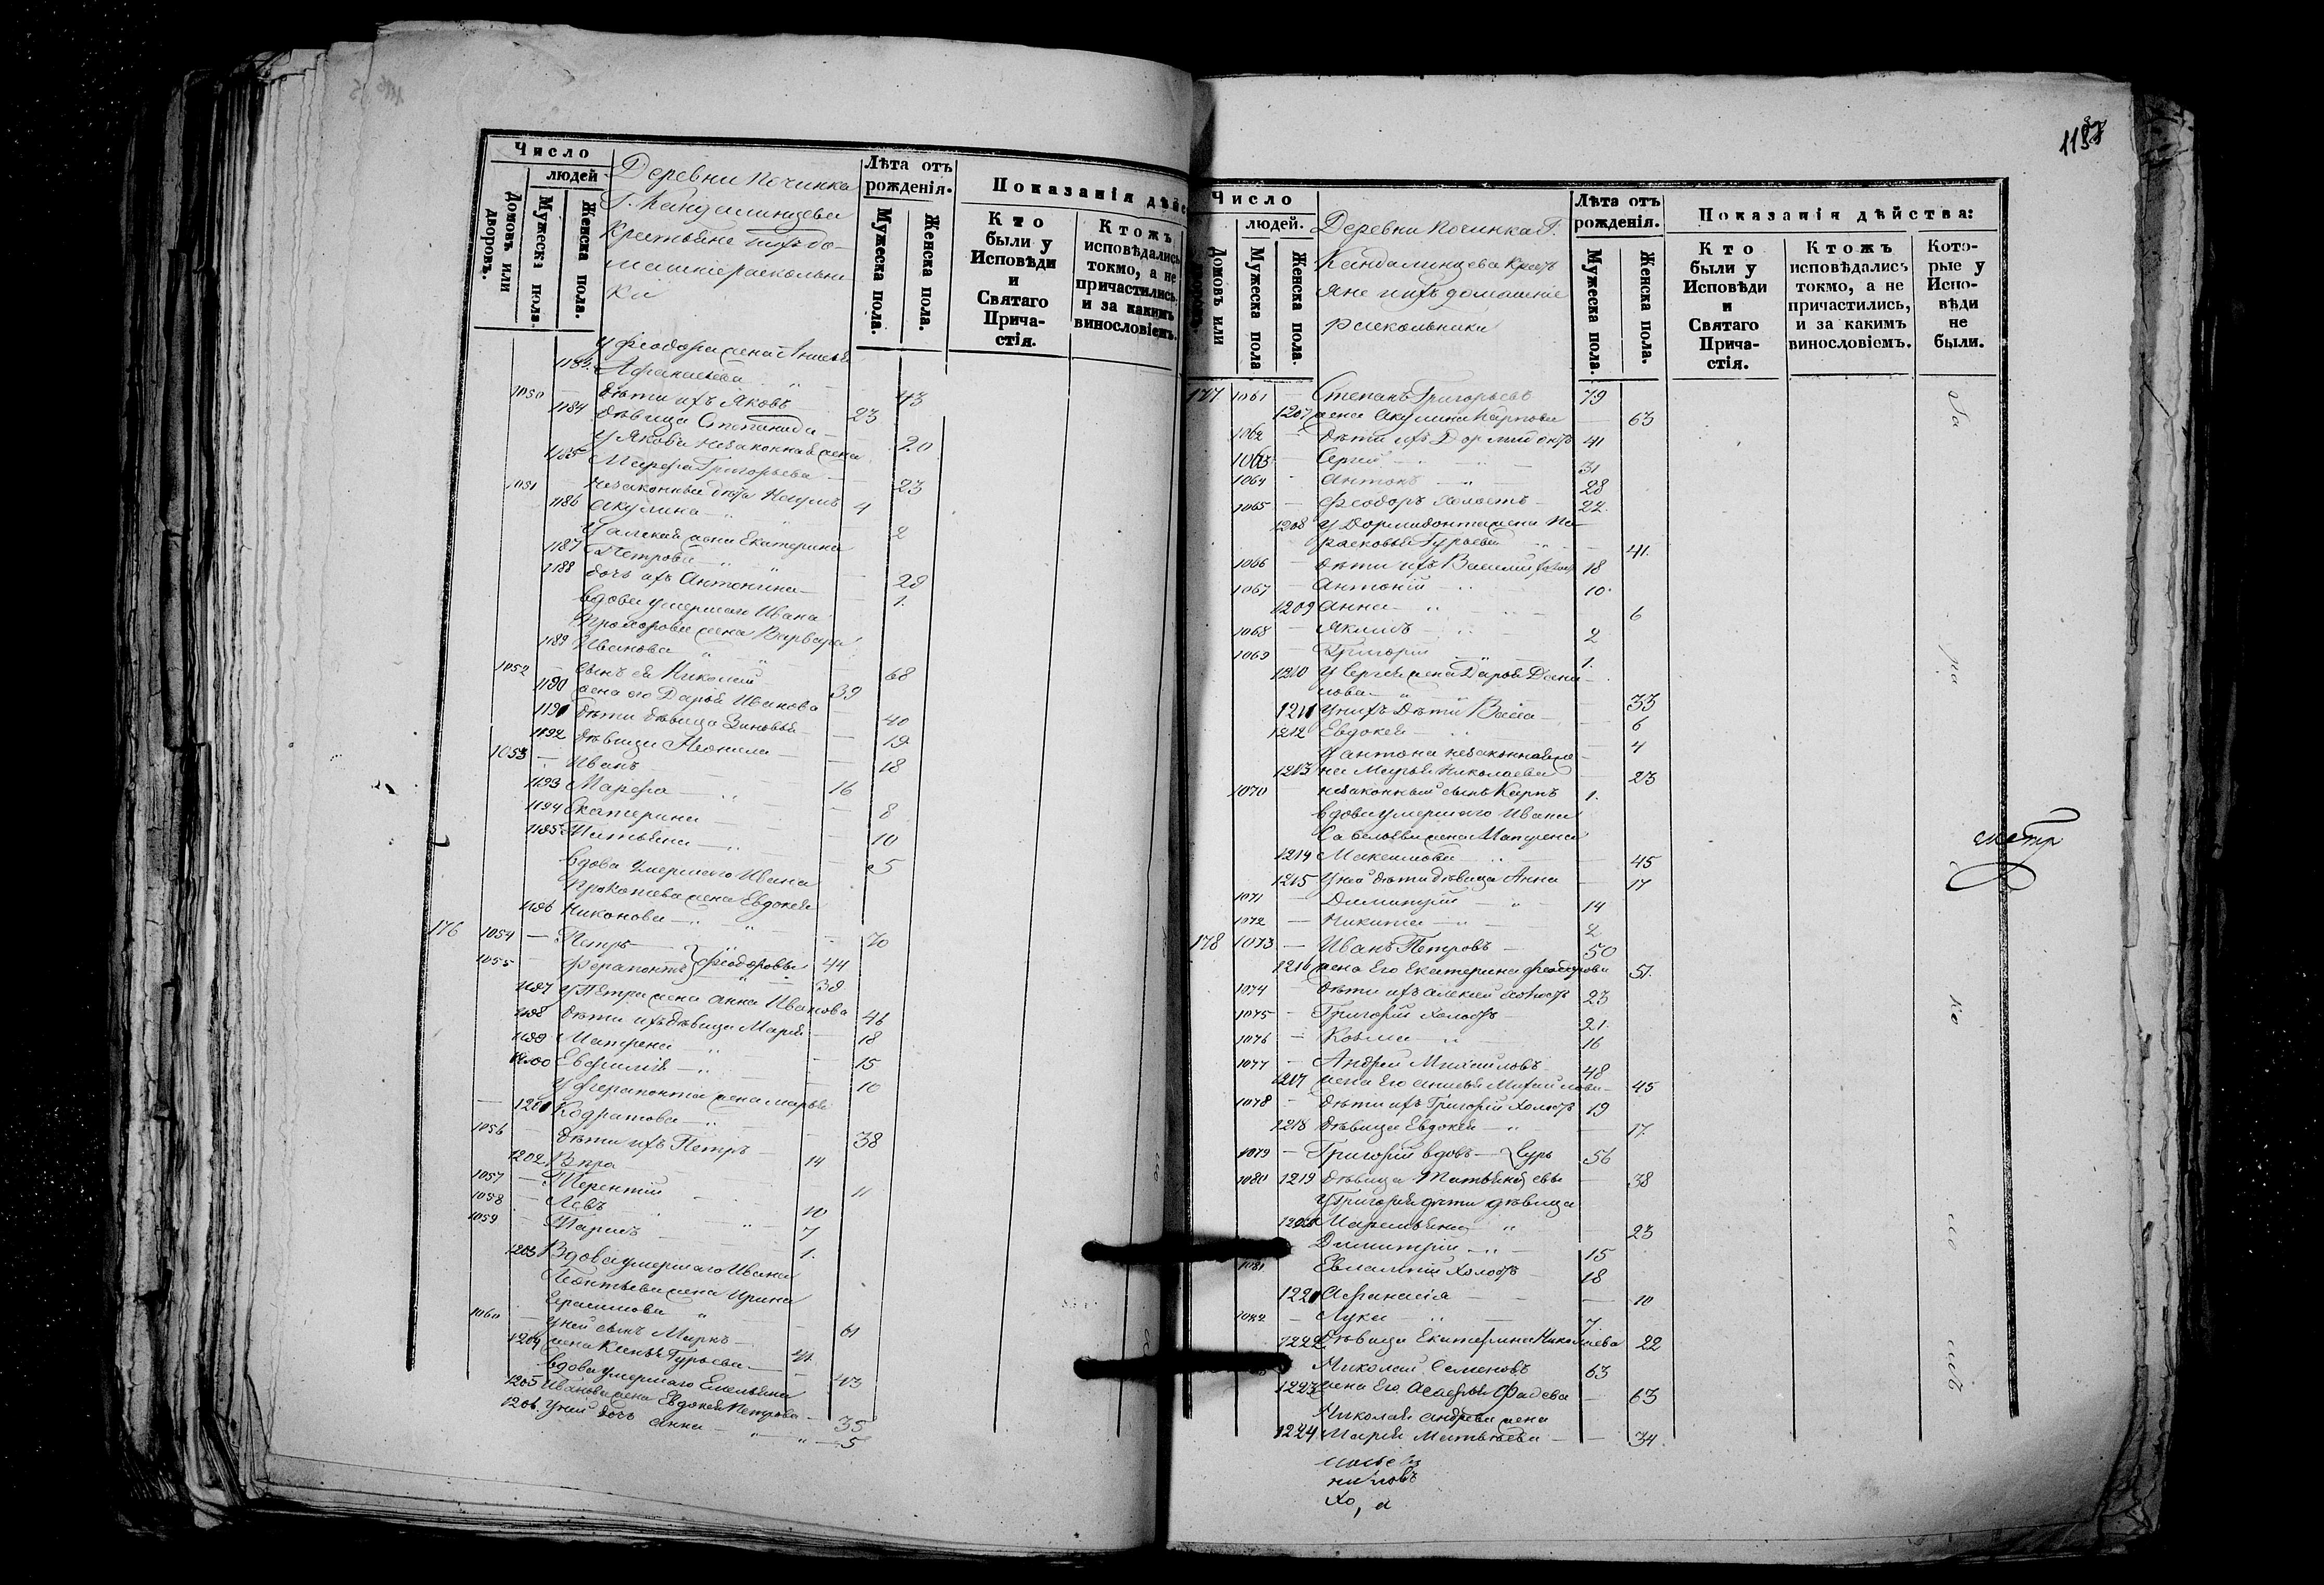 Число
людей
Домовъ или дворовъ.
Мужеска пола.
Женска пола.
Деревни Починка
Г. Кандалинцева
Крестьяне ихъ до-
машніе раскольни
ки
Лѣта отъ
рожденія.
Мужеска пола.
Женска пола.
Показанія дѣйс
Кто
были у
Исповѣди
и
Святаго
Прича-
стія.
Ктожъ
исповѣдались
токмо, а не
причастились,
и за какимъ
винословіемъ.
у Феодора жена Анисья
1183 Афанасьева 43
1050 дѣти ихъ Яковъ 23
1184 дѣвица Степанида 20
у Якова незаконная жена
1185 Марфа Григорьева 23
1051 незаконныя дѣти Наумъ 4
1186 Акулина 2
жена Екатерина
1187 Петрова 28
1188 дочь ихъ Антонина 1.
вдова умершаго Ивана
Прохорова жена Варвара
1189 Иванова 68
1052 сынъ ея Николай 39
1190 жена его Дарья Иванова 40
1191 дѣти дѣвица Зиновья 19
1192 дѣвица Неонила 18
1053 Иванъ 16
1193 Марфа 8
1194 Екатерина 10
1195 Татьяна 5
вдова умершаго Ивана
Прокопева жена Евдокея
1196 Никонова 70
176 1054 Петръ 44
1055 Ферапонтъ } Феодоровы 38
1197 у Петра жена Анна Иванова 46
1198 дѣти ихъ дѣвица Марья 18
1199 Матрена 15
1200 Евфимія 10
у Ферапонта жена Марья
1201 Кодратова 38
1056 дѣти ихъ Петръ 14
1202 Вѣра 11
1057 Терентій 10
1058 Левъ 7
1059 1.
1203 Вдова умершаго Ивана
Леонтьева жена Ирина
Герасимова 61
1060 у ней сынъ Маркъ 41
1204 жена Гурьева 43
вдова умершаго Емельяна
1205 Иванова жена Евдокея Петрова 35
1206 у ней дочь Анна 5
1137
Число
людей.
Домовъ или
Мужеска пола
Женска пола.
Деревни Починка Г.
Кандалинцева Кресть
яне ихъ домашніе
раскольники
Лѣта отъ
рожденія.
Мужеска пола.
Женска пола.
Показанія дѣйства:
Кто
были у
Исповѣди
и
Святаго
Прича-
стія.
Ктожъ
исповѣдались
токмо, а не
причастились,
и за какимъ
винословіемъ.
Кото-
рые у
Испо-
вѣди
не
были.
177 1061 Степанъ Григорьевъ 79
1207 жена Акулина Карпова 63
1062 дѣти ихъ Дормидонтъ 41
1063 Сергей 31
1064 Антонъ 28
1065 Феодоръ холостъ 22
1208 у Дормидонта жена Па-
расковья Гурьева 41.
1066 дѣти ихъ Василій 18
1067 Антоній 10.
1209 Анна 6
1068 Якимъ 2
1069 Григорій 1.
1210 у Сергея жена Дарья Дани
лова 33
1211 у нихъ дѣти Васса 6
1212 Евдокея 4
у Антона незаконная же
1213 на Марья Николаева 23
1070 незаконный сынъ Карпъ 1.
вдова умершаго Ивана
Савельева жена Матрена
1214 Максимова 45
1215 у ней дѣти дѣвица Анна 17
1071 Димитрій 14
1072 Никита 2
178 1073 Иванъ Петровъ 50
1216 жена Его Екатерина Феодорова 51.
1074 дѣти ихъ Алексей холостъ 23
1075 Григорій холостъ 21.
1076 Козма 16
1077 Андрей Михаиловъ 48
1217 жена Его Анисья Михаилова 45
1078 дѣти ихъ Григорій холостъ 19
1218 дѣвица Евдокея 17.
1079 Григорій вдовъ } Гурь 56
1080 1219 дѣвица Татьяна } евы 38
у Григорья дѣти дѣвица
1220 Маремьяна 23
Димитрій 15
1081 Евлампій холостъ 18
1221 Афанасія 10
1082 Лука 7.
1222 дѣвица Екатерина Николаева 22
Николай Семеновъ 63
1223 жена Его Агафья Фадеева 63
Николая Андреева жена
1224 Марья Матвѣева 34
За
ра
ко
ло
мъ